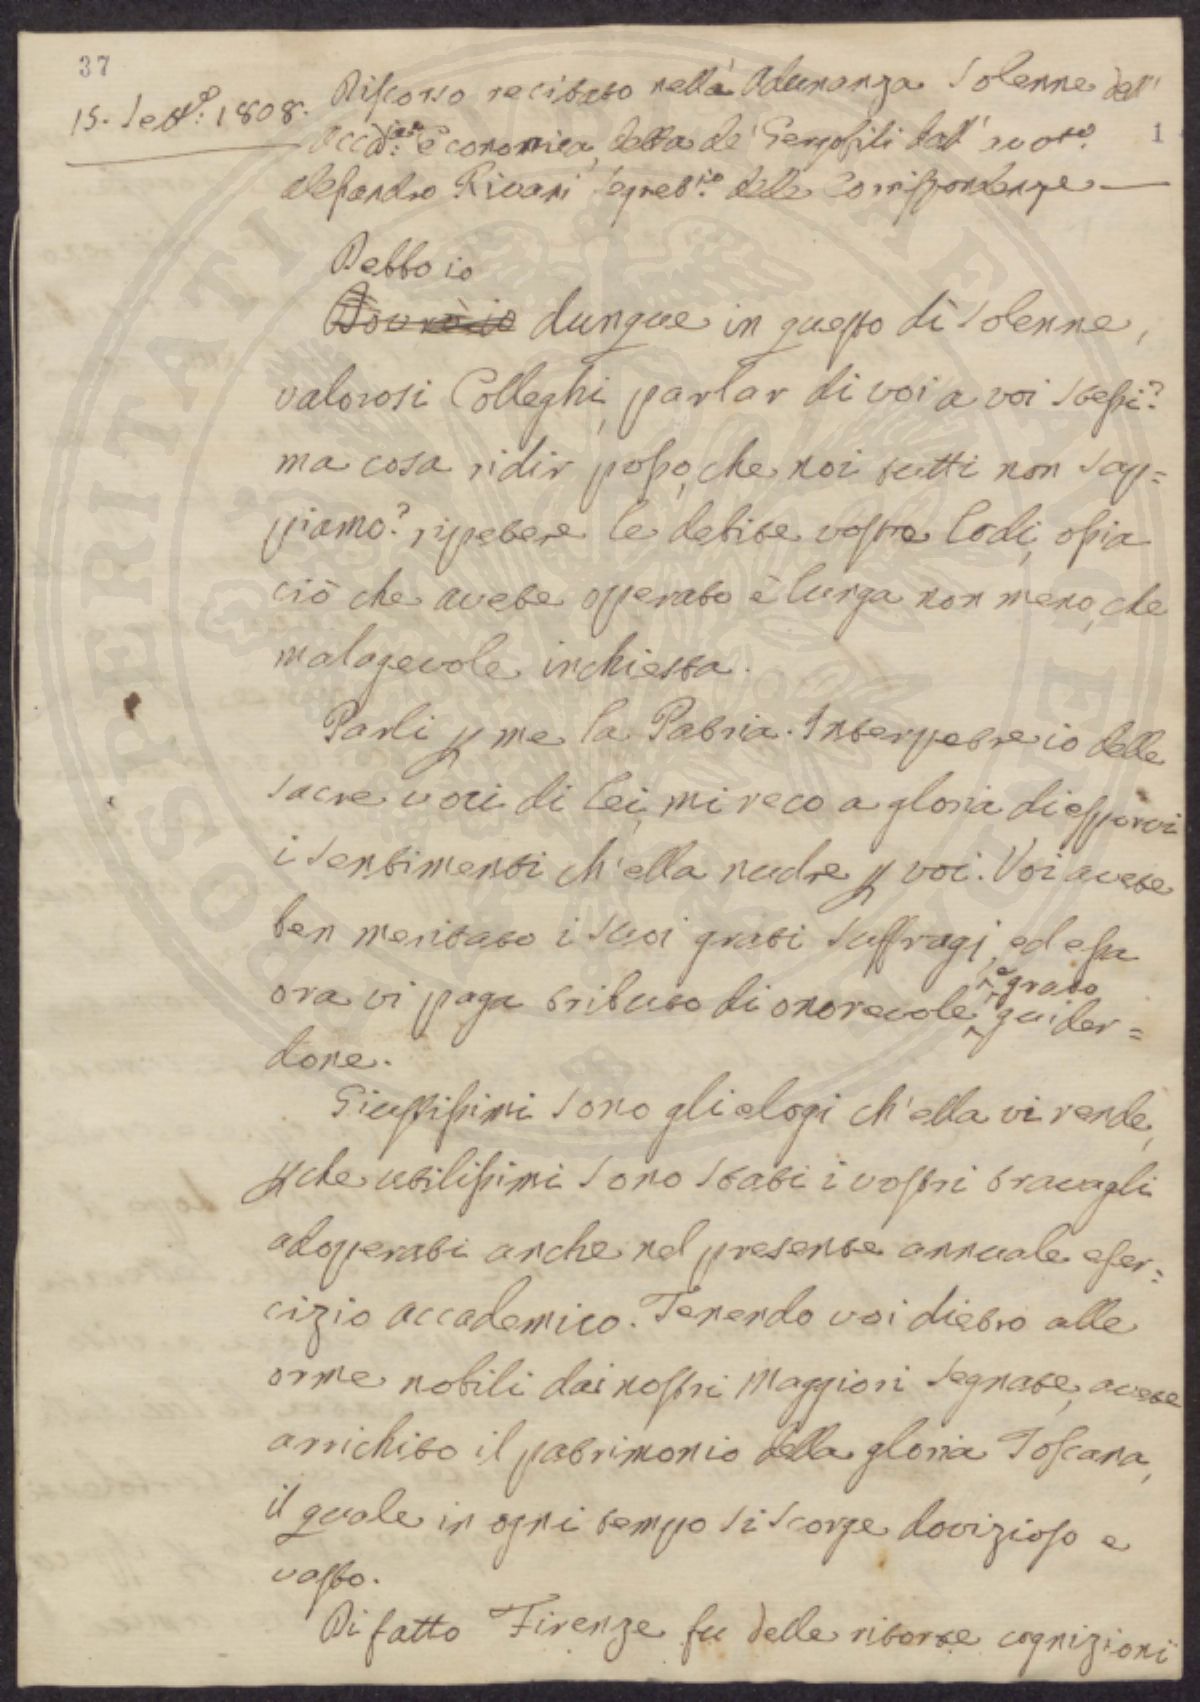 37
15. Sett.e 1808.
Discorso recitato nella Adunanza Solenne dell'
1
Accad.ia Economica, della de' Gergofili dall'
Alessandro Rivani Segret.io delle Corrispondenze —
Debbo io
Dovrò io dunque in questo dì solenne,
valorosi Colleghi, parlar di voi a voi stessi?
ma cosa ridir posso, che noi tutti non sap=
piamo? ripetere le debite vostre lodi, ossia
ciò che avete operato è lunga non meno, che
malagevole inchiesta.
Parli p me la Patria. Interpetre io delle
sacre voci di lei, mi reco a gloria di esporvi
i sentimenti ch'ella nudre p voi. Voi avete
ben meritato i suoi grati suffragj, ed essa
e grato
ora vi paga tributo di onorevole guider=
done.
Giustissimi sono gli elogi ch'ella vi rende,
pche utilissimi sono stati i vostri travagli
adoperati anche nel presente annuale eser=
cizio accademico. Tenendo voi dietro alle
orme nobili dai nostri Maggiori segnate, avete
arrichito il patrimonio della gloria Toscana,
il quale in ogni tempo si scorge dovizioso e
vasto.
Di fatto Firenze fu delle risorse cognizioni
PROSPERITATI